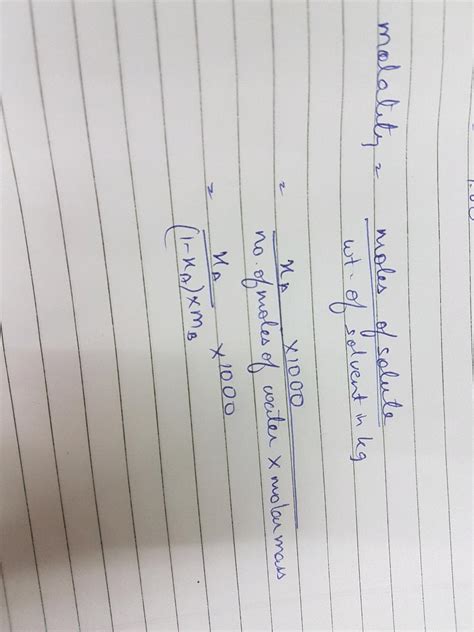 molality = moles of solute
wt. of solvent in kg
= xA × 1000
no. of moles of water × molar mass
= xA × 1000
(1-xA) × mB